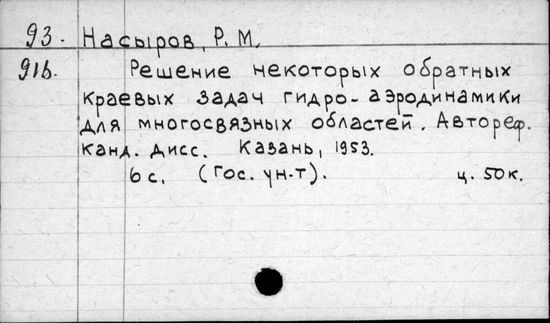 93. Насыров, Р. М.
91б. Решение некоторых обратных
краевых задач гидро-аэродинамики
для многосвязных областей. Автореф.
канд. дисс. Казань, 1953.
6 с. (Гос. ун-т). ц. 50 к.